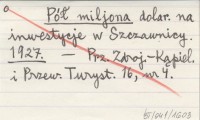 Pół miljona dolar. na
inwestycje w Szczawnicy.
1927. — Prz. Zdroj-Kąpiel.
i Przew. Turyst. 16, nr 4.